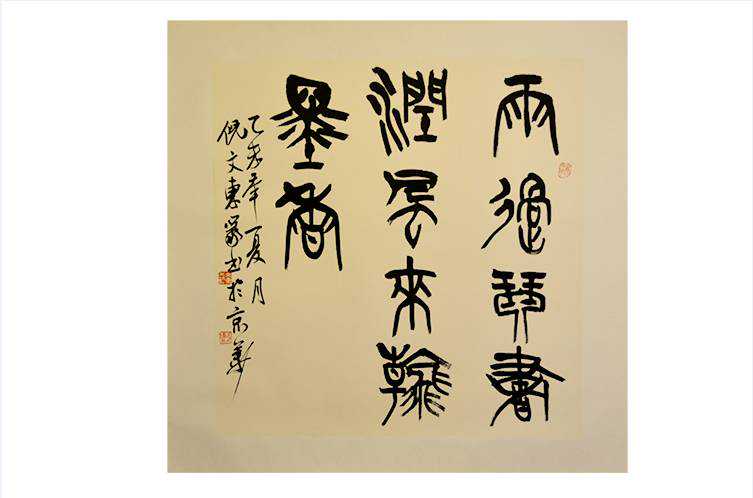 雨過琴書
潤風來翰
墨香
乙未年夏月
倪文惠篆书於京華